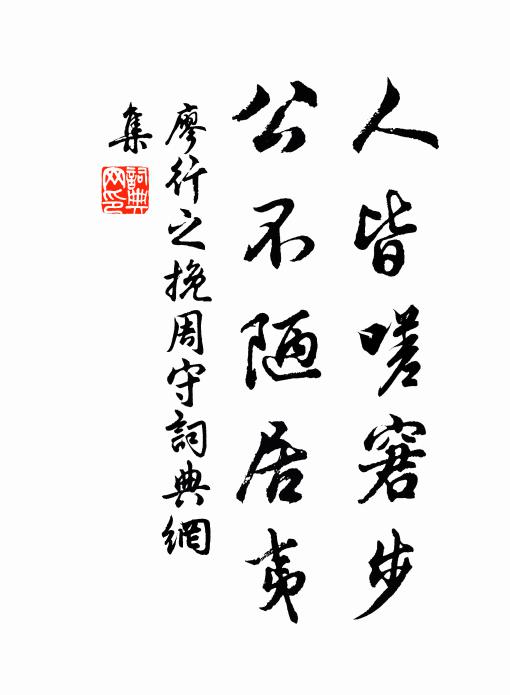 人皆嗟窘步
公不陋居夷
廖行之挽周守詞典網
集
詞典
网印